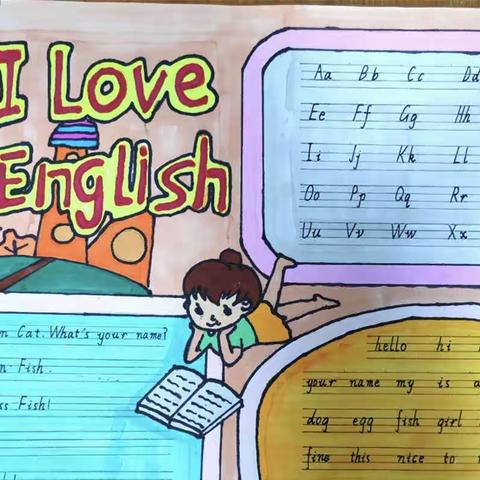 I Love
English
Aa Bb Cc Dd
Ee Ff Gg Hh
Ii Jj Kk Ll
Oo Pp Qq Rr
Uu Vv Ww Xx
Cat. What's your name?
Fish.
Fish!
hello hi
your name my is
dog egg fish girl
fine this nice to